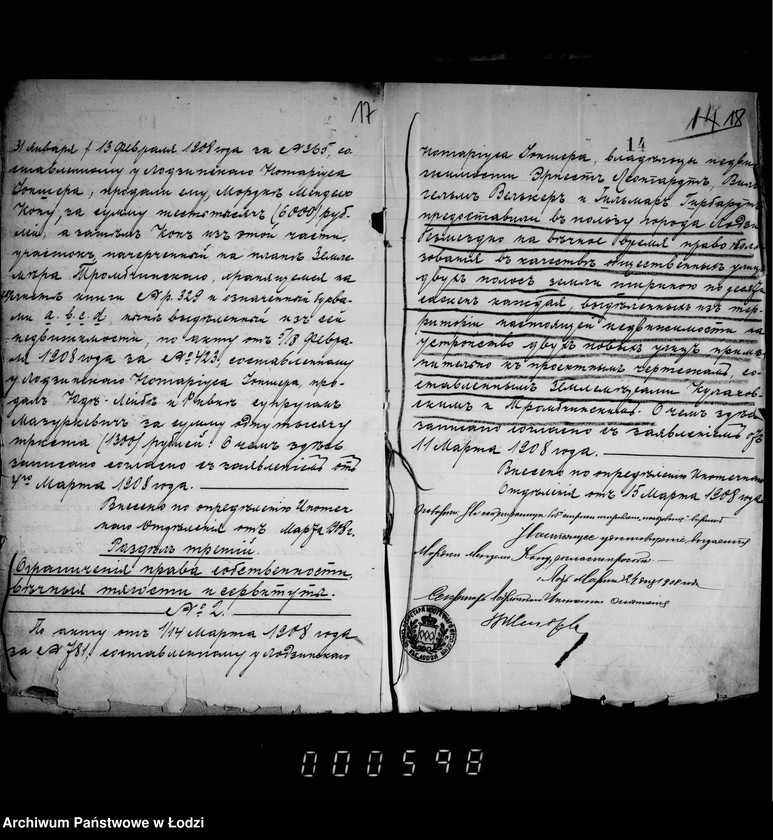 17
31 Января / 13 Февраля 1908 года за № 365, со-
ставленному у Лодзинскаго Нотаріуса
Іокшера, продали ему, Мордке Менделю
Кону, за сумму шесть тысячъ (6000) руб-
лей, а затѣмъ Конъ изъ этой части,
участокъ, начерченный на планѣ Земле-
мѣра Тромбчинскаго, хранящемся на
листѣ книги А р. 329 и означенной буква-
ми a. b. c. d, нынѣ выдѣленный изъ сей
недвижимости, по акту отъ 5/18 Февра-
ля 1908 года за № 423, составленному
у Лодзинскаго Нотаріуса Іокшера, про-
далъ Юдѣ-Лейбѣ и Ривкѣ супругамъ
Мазуркевичъ за сумму одну тысячу
триста (1300) рублей. О чемъ здѣсь
записано согласно съ заявленіемъ отъ
4го Марта 1908 года.
Внесено по опредѣленію Ипотеч-
наго Отдѣленія отъ Марта 1908 г.
Раздѣлъ третій.
Ограниченія права собственности,
вѣчныя тягости и сервитуты.
№ 2.
По акту отъ 1/14 Марта 1908 года
за № 781, составленному у Лодзинскаго
14 18
14
Нотаріуса Іокшера, владѣльцы недви-
жимости Эрнестъ Леонгардтъ, Виль-
гельмъ Велькеръ и Гильмаръ Гирбардтъ
предоставили въ пользу города Лодзи
безмездно на вѣчное время право поль-
зованія въ качествѣ общественныхъ улицъ
двухъ полосъ земли шириною по десяти
саженъ каждая, выдѣленныхъ изъ тер-
риторіи настоящей недвижимости на
устройство двухъ новыхъ улицъ примѣ-
нительно къ проектнымъ чертежамъ, со-
ставленнымъ Землемѣрами Кулаков-
скимъ и Тромбчинскимъ. О чемъ здѣсь
записано согласно съ заявленіемъ отъ
11 Марта 1908 года.
Внесено по опредѣленію Ипотечнаго
Отдѣленія отъ 15 Марта 1908 года
Настоящее удостовѣреніе выдается
Мордке Менделю Кону
Лодзь Марта 24 дня 1908 года
Секретарь Ипотечнаго Отдѣленія
000598
Archiwum Państwowe w Łodzi